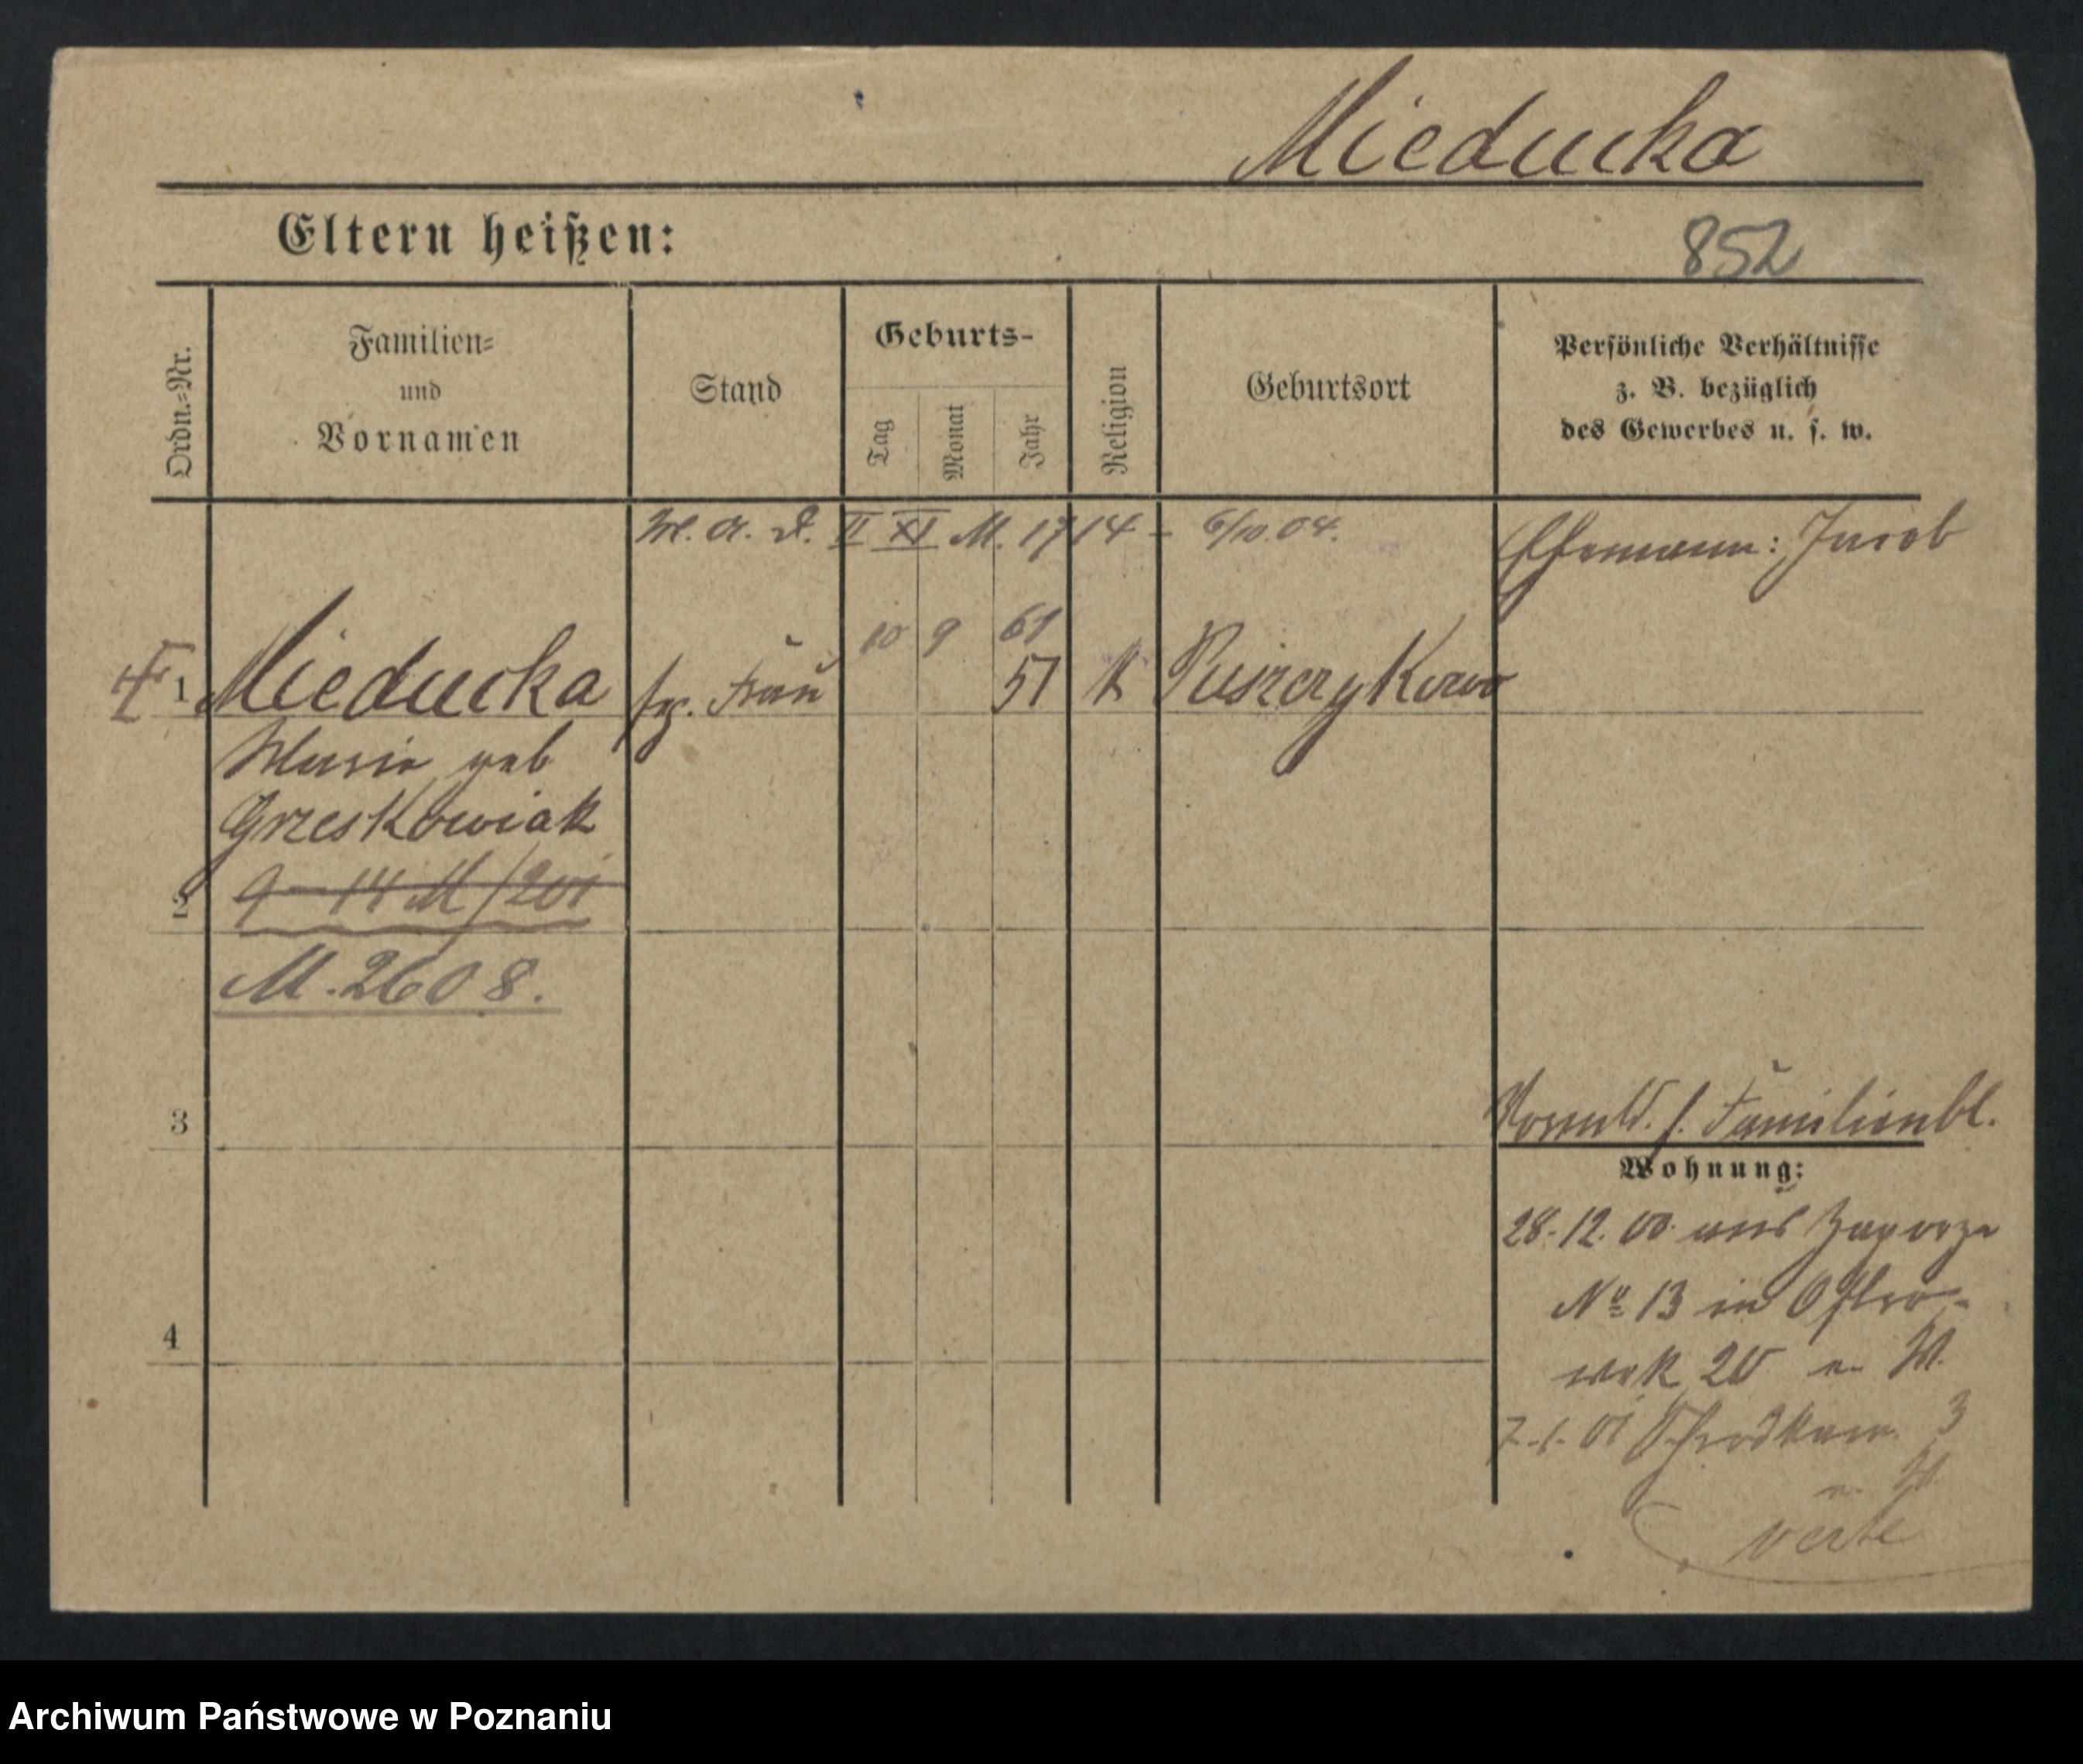 Mieducka
Eltern heißen:
852
Ordn.=Nr.
Familien=
und
Vornamen
Stand
Geburts-
Tag
Monat
Jahr
Religion
Geburtsort
Persönliche Verhältnisse
z. B. bezüglich
des Gewerbes u. s. w.
II XI M. 1714 - 6/10.04.
Ehemann: Jacob
10 9 61
1 Mieducka Frau 51 k Puszczykowo
Marie geb
Grzeskowiak
2 9-14 M/201
M. 2608.
3
4
s. Familienbl.
Wohnung:
28.12.00 aus Zagorze
No 13 in Ostro-
wek 20 n. W.
7.1.01 3
n. W.
verte
Archiwum Państwowe w Poznaniu